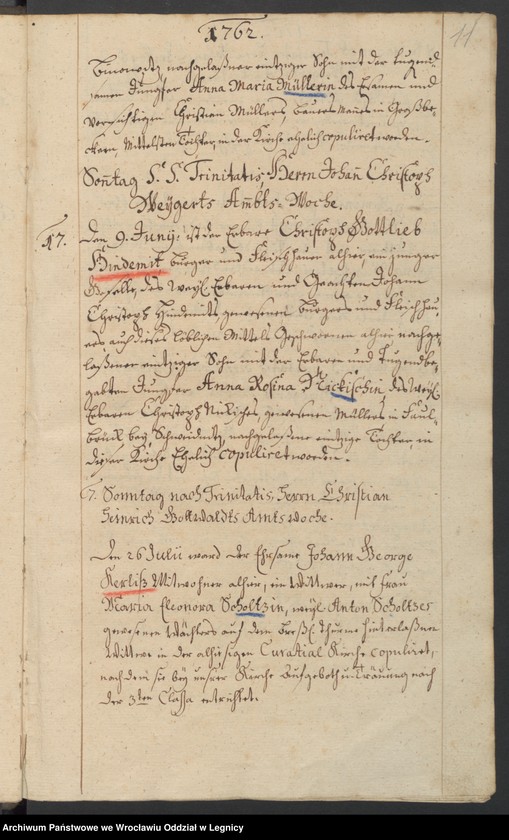 1762.
11
nachgelaßner eintziger Sohn mit der tugend
samen Jungfer Anna Maria Müllerin des Ersamen und
Vorsichtigen Christian Müllers Bauers Mañes in Großbe-
ckern, Mittelsten Tochter, in der Kirche ehelich copuliret worden.
Soñtag S. S. Trinitatis, Herrn Johañ Christoph
Weygerts Ambts-Woche.
17. Den 9. Junÿ, ist der Erbare Christoph Gottlieb
Hindemit Bürger und Fleischhauer alhier, ein junger
Geselle, des Weyl. Erbaren und Geachten Johann
Christoph Hindemits gewesenen Bürgers und Fleischhau-
ers auch dieses löblichen Mittels Geschwornen alhier nachge-
laßener eintziger Sohn mit der Erbaren und Tugendbe-
gabten Jungfer Anna Rosina Nickischin, des weyl.
Erbaren Christoph Nickisches gewesenen Müllers in Faul-
brück bey Schweidnitz, nachgelaßene eintzige Tochter, in
dieser Kirche Ehelich copuliret worden.
7. Sonntag nach Trinitatis, Herrn Christian
Heinrich Gottwaldts Amts Woche.
Den 26 Julii ward der Ehrsame Johann George
Kerliß Mitwohner alhier, ein Wittwer, mit Frau
Maria Eleonora Scholtzin, weyl. Anton Scholtzes
gewesenen Wächters auf dem Breßl. Thurme hinterlaßner
Wittwe in der alhiesigen Curatial Kirche copuliret,
nachdem sie bey unsrer Kirche Aufgeboth u. Trauung nach
der 3ten Classa entrichtet.
Archiwum Państwowe we Wrocławiu Oddział w Legnicy